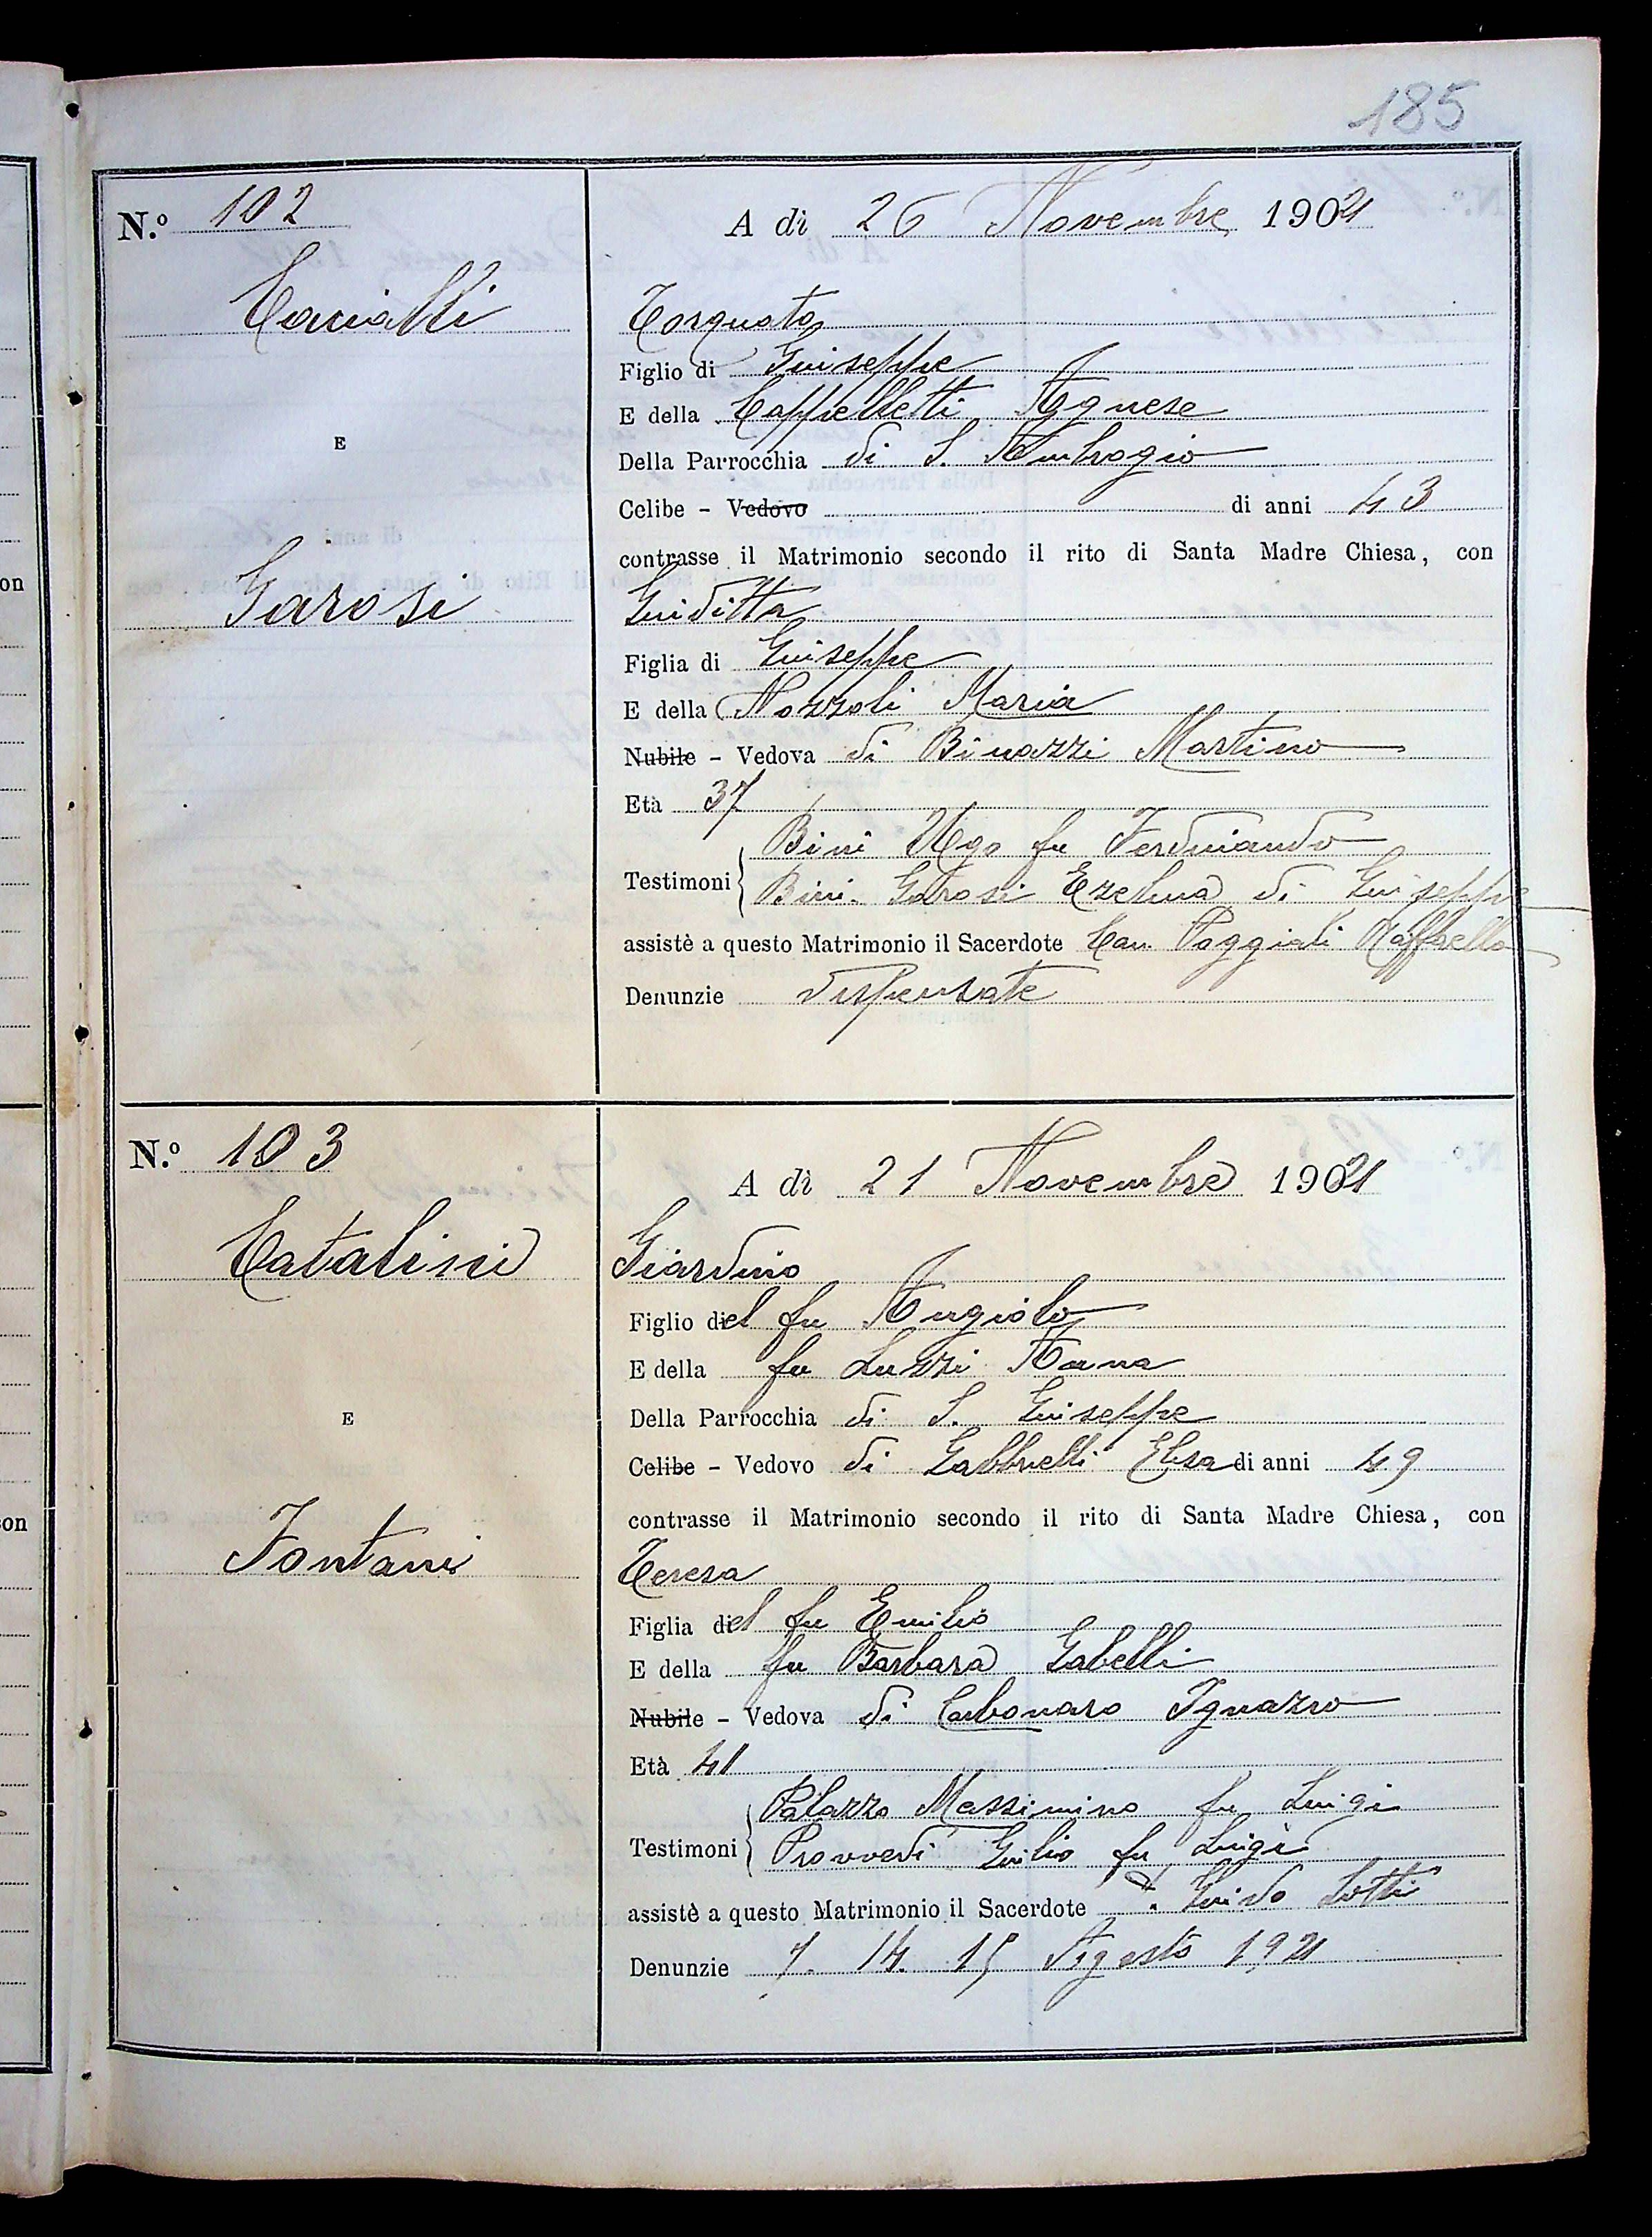 185
N.º 102
A dì 26 Novembre 1921
Caciatti
Torquato
Figlio di Giuseppe
E della Cappelletti Agnese
E
Della Parrocchia di S. Ambrogio
Celibe - Vedovo di anni 43
contrasse il Matrimonio secondo il rito di Santa Madre Chiesa, con
Garosi
Giuditta
Figlia di Giuseppe
E della Nozzoli Maria
Nubile - Vedova di Binazzi Martino
Età 37
Bini Ugo fu Ferdinando
Testimoni Bini-Garosi Ezelina di Giuseppe
assistè a questo Matrimonio il Sacerdote Can. Poggiali Raffaello
Denunzie dispensate
N.º 103
A dì 21 Novembre 1921
Catalini
Giardino
Figlio del fu Angiolo
E della fu Luzzi Anna
E
Della Parrocchia di S. Giuseppe
Celibe - Vedovo di Gabbrielli Elisa di anni 49
contrasse il Matrimonio secondo il rito di Santa Madre Chiesa, con
Fontani
Teresa
Figlia del fu Emilio
E della fu Barbara Gabelli
Nubile - Vedova di Carbonaro Ignazio
Età 41
Palazzo Massimino fu Luigi
Testimoni Provvedi Giulio fu Luigi
assistè a questo Matrimonio il Sacerdote D. Guido Lotti
Denunzie 7. 14. 15 Agosto 1921
on
on